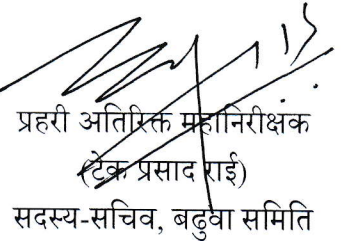 प्रहरी अतिरिक्त महानिरीक्षक
(टेक प्रसाद राई)
सदस्य-सचिव, बढुवा समिति